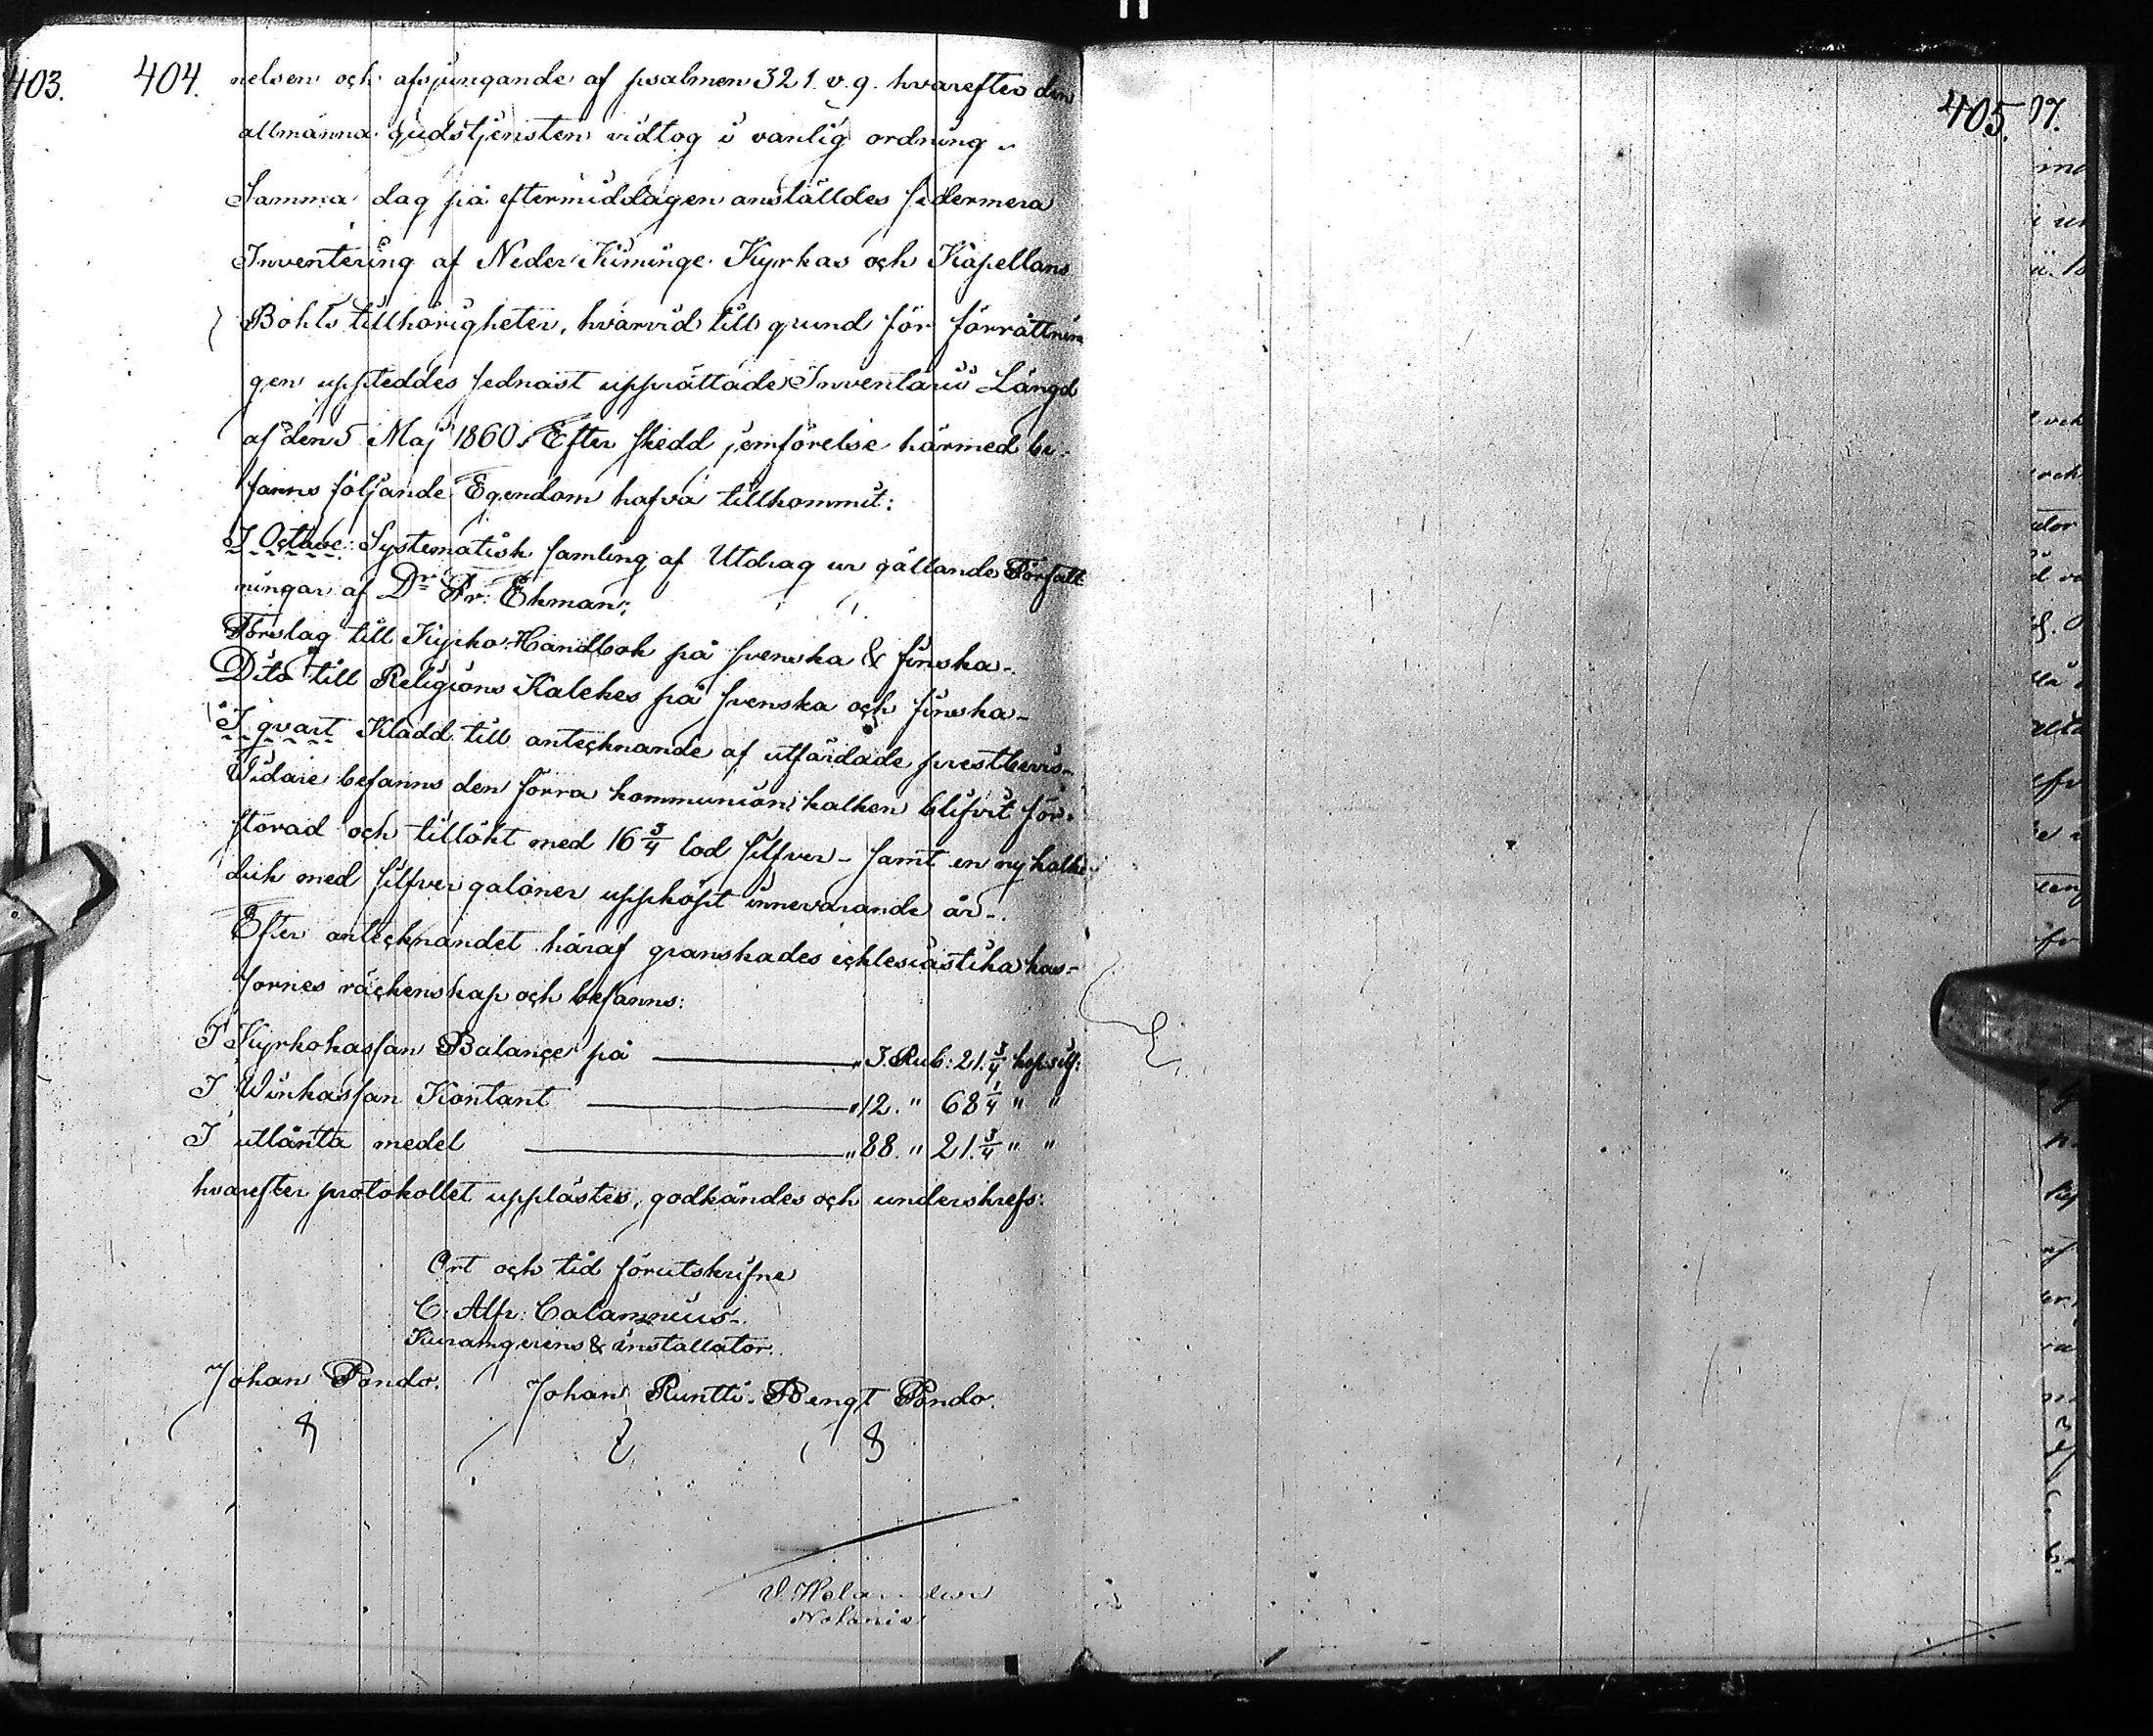 403.
404.
nelsen och afsjungande af psalmen 321. v. 9. hvarefter den
allmänna gudstjensten vidtog i vanlig ordning.
Samma dag på eftermiddagen anställdes sedermera
Inventering af Neder Kiminge Kyrkas och Kapellans
Bohls tillhörigheter, hvarvid till grund för förrättnin
gen uppteddes sednast upprättade Inventarii Längd
af den 5 Maj 1860. Efter skedd jemförelse härmed be-
fanns följande Egendom hafva tillkommit:
I Octave: Systematisk samling af Utdrag ur gällande Författ
ningar af Dr Fr: Ekman;
Förslag till Kyrko-Handbok på svenska & finska.
Dito till Religions Katekes på svenska och finska.
I qvart Kladd till antecknande af utfärdade prestbevis.
Widare befanns den förra kommunion kalken blifvit för-
storad och tillökt med 16 3/4 lod silfver - samt en ny kalk-
duk med silfver galoner uppköpt innevarande år.
Efter antecknandet häraf granskades ecklesiastika kas-
sornes räckenskap och befanns:
I Kyrkokassan Balance på „ 3. Rub: 21. 3/4 kop. silf:
I Winkassan Kontant „ 12. " 68 1/4 " "
I utlånta medel „ 88. " 21. 3/4 " "
hvarefter protokollet upplästes, godkändes och underskrefs:
Ort och tid förutskrifne
C: Alfr: Calamnius.
Kuramgerens & installator.
Johan Pondo. Johan Runtti. Bengt Pondo.
Notarie
405.
07.